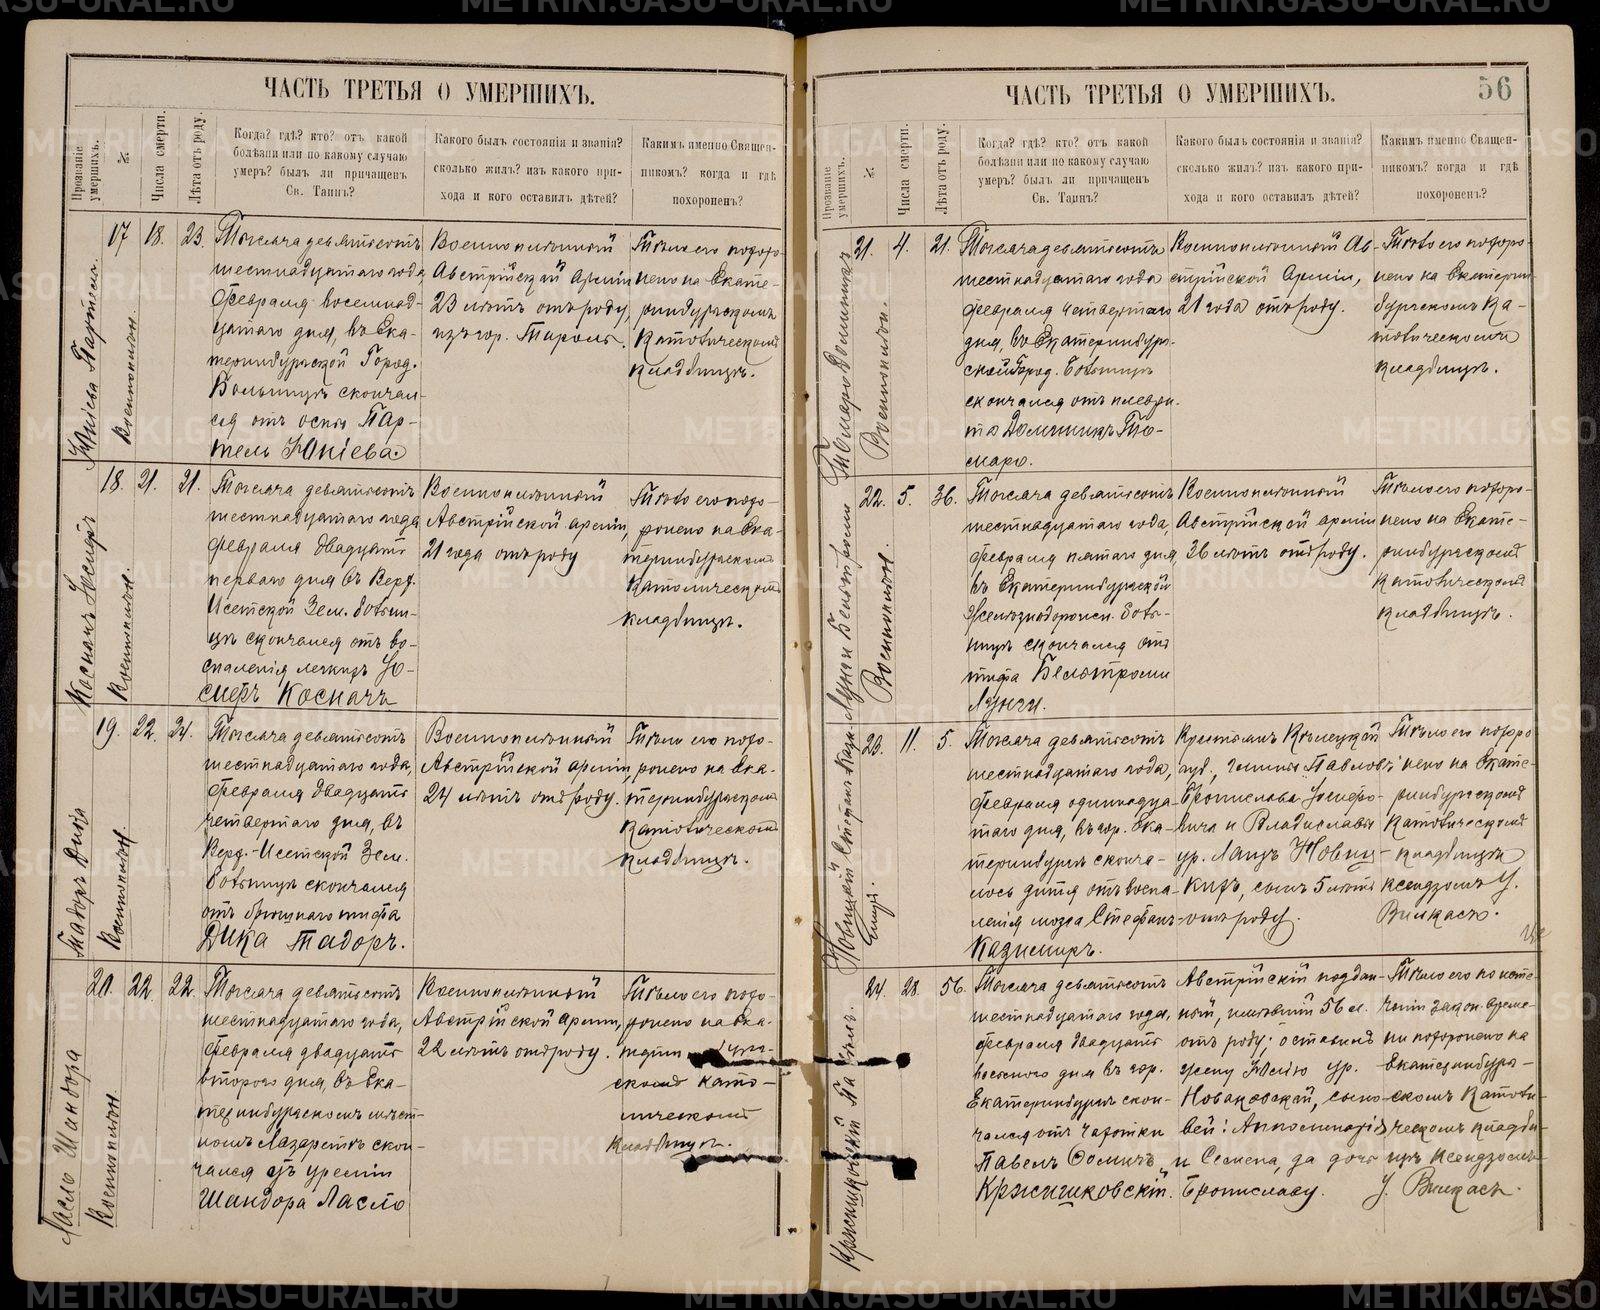 ЧАСТЬ ТРЕТЬЯ О УМЕРШИХЪ.
Прозваніе умершихъ.
№.
Числа смерти.
Лѣта отъ роду.
Когда? гдѣ? кто? отъ какой
болѣзни или по какому случаю
умеръ? былъ ли причащенъ
Св. Таинъ?
Какого былъ состоянія и званія?
сколько жилъ? изъ какого при-
хода и кого оставилъ дѣтей?
Какимъ именно Священ-
никомъ? когда и гдѣ
похороненъ?
Юніева Партель.
Военноплѣн.
17
18.
23.
Тысяча девятьсотъ
шестнадцатаго года,
февраля восемнад-
цатаго дня, въ Ека-
теринбургской Город.
Больницѣ скончал-
ся отъ оспы Пар-
тель Юніева.
Военноплѣнный
Австрійской арміи
23 лѣтъ отъ роду,
изъ гор. Тироль.
Тѣло его похоро-
нено на Екате-
ринбургскомъ
Католическомъ
кладбищѣ.
Косначъ Іосифъ
Военноплѣн.
18.
21.
21.
Тысяча девятьсотъ
шестнадцатаго года
февраля двадцать
перваго дня въ Верх.
Исетской Зем. больни-
цѣ скончался отъ во-
спаленія легкихъ Іо-
сифъ Косначъ
Военноплѣнный
Австрійской арміи,
21 года отъ роду
Тѣло его похо-
ронено на Ека-
теринбургскомъ
Католическомъ
кладбищѣ.
Тадоръ Дика
Военноплѣн
19.
22.
24.
Тысяча девятьсотъ
шестнадцатаго года,
февраля двадцать
четвертаго дня, въ
Верх.-Исетской Зем.
больницѣ скончался
отъ брюшнаго тифа
Дика Тадоръ.
Военноплѣнный
Австрійской арміи,
24 лѣтъ отъ роду.
Тѣло его похо-
ронено на Ека-
теринбургскомъ
Католическомъ
кладбищѣ.
Ласло Шандора
Военноплѣн.
20.
22.
22.
Тысяча девятьсотъ
шестнадцатаго года,
февраля двадцать
второго дня, въ Ека-
теринбургскомъ мѣст-
номъ Лазаретѣ скон-
чался отъ уреміи
Шандора Ласло
Военноплѣнный
Австрійской арміи,
22 лѣтъ отъ роду.
Тѣло его похо-
ронено на Ека-
скомъ като-
лическомъ
кладбищѣ.
ЧАСТЬ ТРЕТЬЯ О УМЕРШИХЪ.
56
Прозваніе умершихъ.
№.
Числа смерти.
Лѣта отъ роду.
Когда? гдѣ? кто? отъ какой
болѣзни или по какому случаю
умеръ? былъ ли причащенъ
Св. Таинъ?
Какого былъ состоянія и званія?
сколько жилъ? изъ какого при-
хода и кого оставилъ дѣтей?
Какимъ именно Священ-
никомъ? когда и гдѣ
похороненъ?
Томаро Доминикъ
Военноплѣн.
21.
4.
21.
Тысяча девятьсотъ
шестнадцатаго года
февраля четвертаго
дня, въ Екатеринбург-
ской Город. больницѣ
скончался отъ плеври-
та Доминикъ То-
маро.
Военноплѣнный Ав-
стрійской Арміи,
21 года отъ роду.
Тѣло его похоро-
нено на Екатерин-
бургскомъ Ка-
толическомъ
кладбищѣ.
Луичи Бельтроми
Военноплѣн.
22.
5.
36.
Тысяча девятьсотъ
шестнадцатаго года,
февраля пятаго дня,
въ Екатеринбургской
Желѣзнодорожн. боль-
ницѣ скончался отъ
тифа Бельтроми
Луичи.
Военноплѣнный
Австрійской арміи
36 лѣтъ отъ роду.
Тѣло его похоро-
нено на Екате-
ринбургскомъ
Католическомъ
кладбищѣ.
Новицкій Стефанъ Каз.
23.
11.
5.
Тысяча девятьсотъ
шестнадцатаго года,
февраля одиннадца-
таго дня, въ гор. Ека-
теринбургѣ сконча-
лось дитя отъ воспа-
ленія мозга Стефанъ-
Казимиръ.
Крестьянъ Кѣлецкой
губ., гмины Павловъ
Брониславa Іосифо-
вича и Владиславы
ур. Ланцъ Новиц-
кихъ, сынъ 5 лѣтъ
отъ роду.
Тѣло его похоро-
нено на Екате-
ринбургскомъ
Католическомъ
кладбищѣ
ксендзомъ І.
Вилкасъ.
Кржишковскій Павелъ.
24.
28.
56.
Тысяча девятьсотъ
шестнадцатаго года,
февраля двадцать
восьмого дня въ гор.
Екатеринбургѣ скон-
чался отъ чахотки
Павелъ Фоминъ
Кржишковскій.
Австрійскій поддан-
ный, имѣвшій 56 л.
отъ роду; оставилъ
жену Юлію ур.
Новаковской, сыно-
вей: Апполинарія
и Семена, да дочь
Брониславу.
Тѣло его по исте-
ченіи закон. време-
ни похоронено на
Екатеринбург-
скомъ Католи-
ческомъ кладби-
щѣ ксендзомъ
І. Вилкасъ.
METRIKI.GASO-URAL.RU